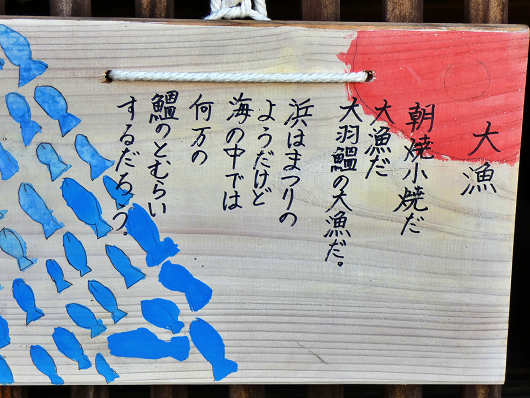 大漁
朝焼小焼だ
大漁だ
大羽鰮の大漁だ。
浜はまつりの
ようだけど
海の中では
何万の
鰮のとむらい
するだろう。